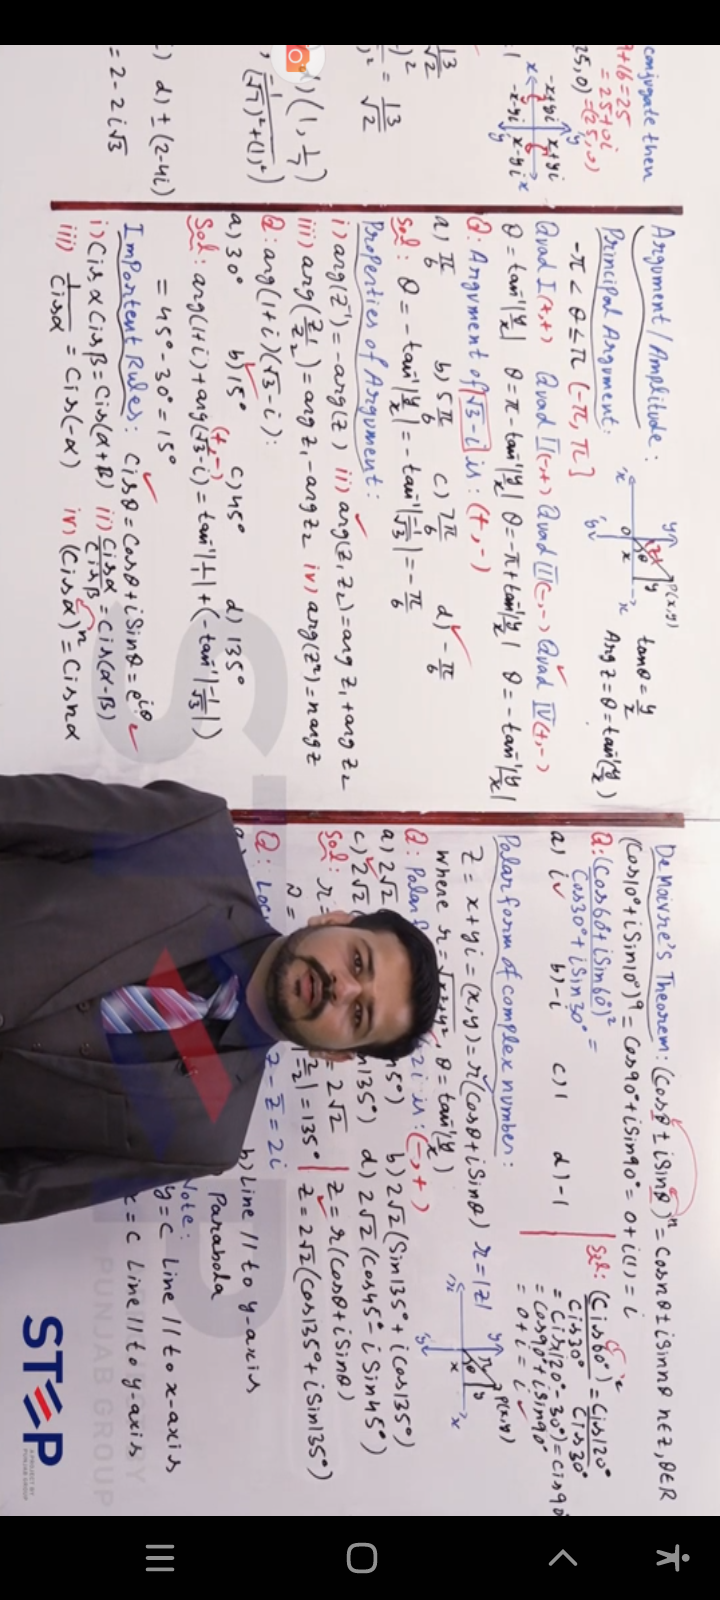 conjugate then
9+16=25
=25+0i
25,0) =(25,0)
-x+yi x+yi
-x-yi x-yi
13
√2
)² = 13
√2
) (1, 1/7)
d) ± (2-4i)
= 2-2i√3
Argument/Amplitude:
tanθ = y/x
Arg Z = θ = tan⁻¹(y/x)
P(x,y)
Principal Argument:
-π < θ ≤ π (-π, π]
Quad I (+,+) Quad II (-,+) Quad III (-,-) Quad IV (+,-)
θ = tan⁻¹|y/x| θ = π - tan⁻¹|y/x| θ = -π + tan⁻¹|y/x| θ = -tan⁻¹|y/x|
Q: Argument of √3-i is: (+,-)
a) π/6 b) 5π/6 c) 7π/6 d) -π/6
Sol: θ = -tan⁻¹|y/x| = -tan⁻¹|-1/√3| = -π/6
Properties of Argument:
i) arg(Z⁻¹) = -arg(Z) ii) arg(Z₁Z₂) = arg Z₁ + arg Z₂
iii) arg(Z₁/Z₂) = arg Z₁ - arg Z₂ iv) arg(Zⁿ) = n arg Z
Q: arg(1+i)(√3-i):
a) 30° b) 15° c) 45° d) 135°
(+,-)
Sol: arg(1+i) + arg(√3-i) = tan⁻¹|1/1| + (-tan⁻¹|-1/√3|)
= 45° - 30° = 15°
Importent Rules: Cisθ = Cosθ + iSinθ = e^iθ
i) Cisα Cisβ = Cis(α+β) ii) Cisα/Cisβ = Cis(α-β)
iii) 1/Cisα = Cis(-α) iv) (Cisα)ⁿ = Cis nα
De Moivre's Theorem: (Cosθ ± iSinθ)ⁿ = Cosnθ ± iSinnθ n∈Z, θ∈R
(Cos10° + iSin10°)⁹ = Cos90° + iSin90° = 0 + i(1) = i
Q: (Cos60° + iSin60°)²/Cos30° + iSin30° =
a) i b) -i c) 1 d) -1
Sol: (Cis60°)²/Cis30° = Cis120°/Cis30°
= Cis(120°-30°) = Cis90°
= Cos90° + iSin90°
= 0 + i = i
Polar form of complex number:
Z = x + yi = (x,y) = r(Cosθ + iSinθ) r = |Z|
where r = √x²+y² θ = tan⁻¹(y/x)
P(x,y)
Q: Polar f 2i is: (-,+)
a) 2√2 b) 2√2(Sin135° + iCos135°)
c) 2√2 n135°) d) 2√2(Cos45° - iSin45°)
Sol: r = = 2√2 | Z = r(Cosθ + iSinθ)
= 135° | Z = 2√2(Cos135° + iSin135°)
Q: Locu Z - Z̄ = 2i
b) Line // to y-axis
Parabola
Note:
y = c Line // to x-axis
x = c Line // to y-axis
STEP
A PROJECT OF
PUNJAB GROUP